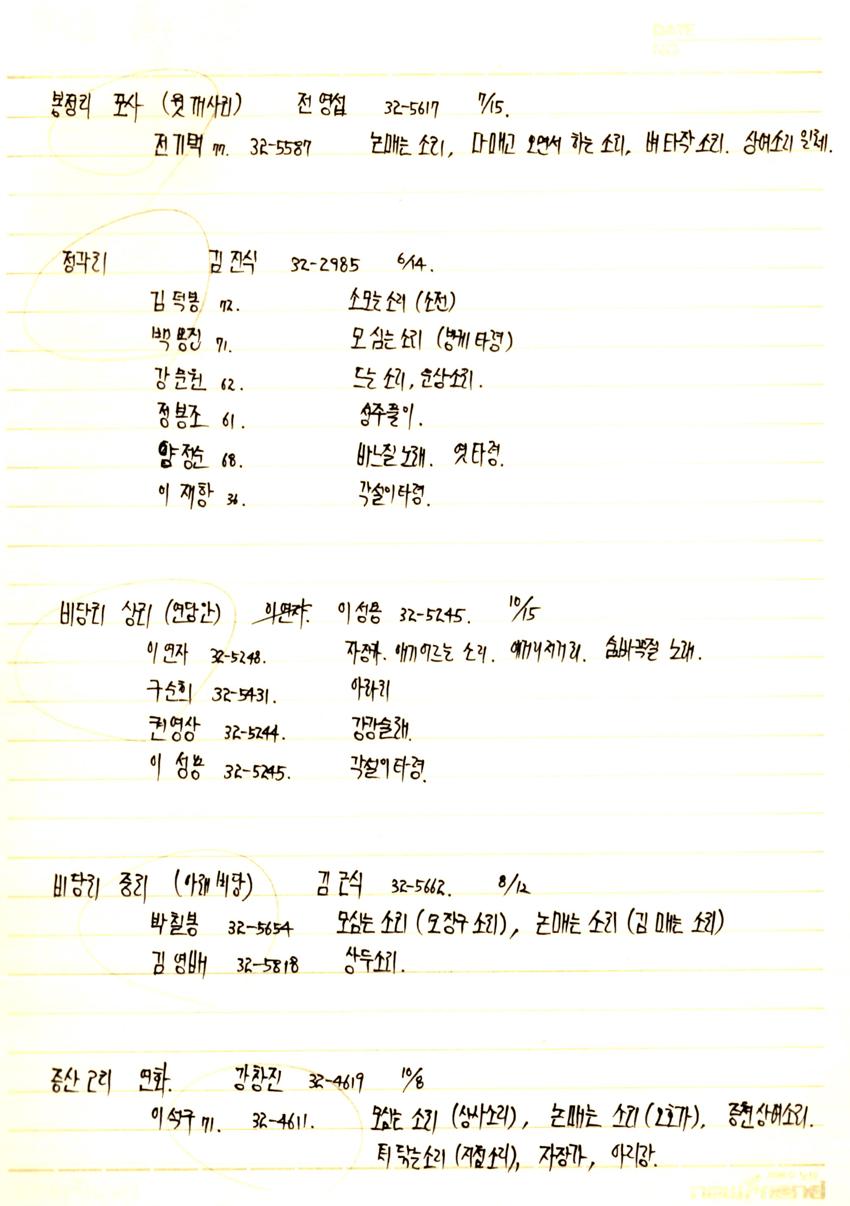 봉정리 포사 (윗개사리) 전영섭 32-5617 7/15.
전기택 77. 32-5587 논매는 소리, 다매고 오면서 하는 소리, 벼타작소리. 상여소리 일체.
정각리 김진식 32-2985 6/14.
김덕봉 72. 소모는소리 (소전)
백용진 71. 모심는소리 (방게타령)
강순원 62. 뜨는 소리, 운상소리.
정봉조 61. 성주풀이.
양정순 68. 바느질노래. 엿타령.
이재항 36. 각설이타령.
비당리 상리 (연담안) 이연자. 이성용 32-5245. 10/15
이연자 32-5248. 자장가. 애기어르는 소리. 이거리저거리. 숨바꼭질 노래.
구순희 32-5431. 아라리
권영상 32-5244. 강강술래.
이성용 32-5245. 각설이타령.
비당리 중리 (아래비당) 김근식 32-5662. 8/12
박칠봉 32-5654 모심는 소리 (모장구소리), 논매는 소리 (김매는 소리)
김영배 32-5818 상두소리.
증산2리 연화. 강창진 32-4619 10/8
이석구 71. 32-4611. 모심는 소리 (상사소리), 논매는 소리 (오호가), 중천상여소리.
터닦는소리 (지점소리), 자장가, 아리랑.